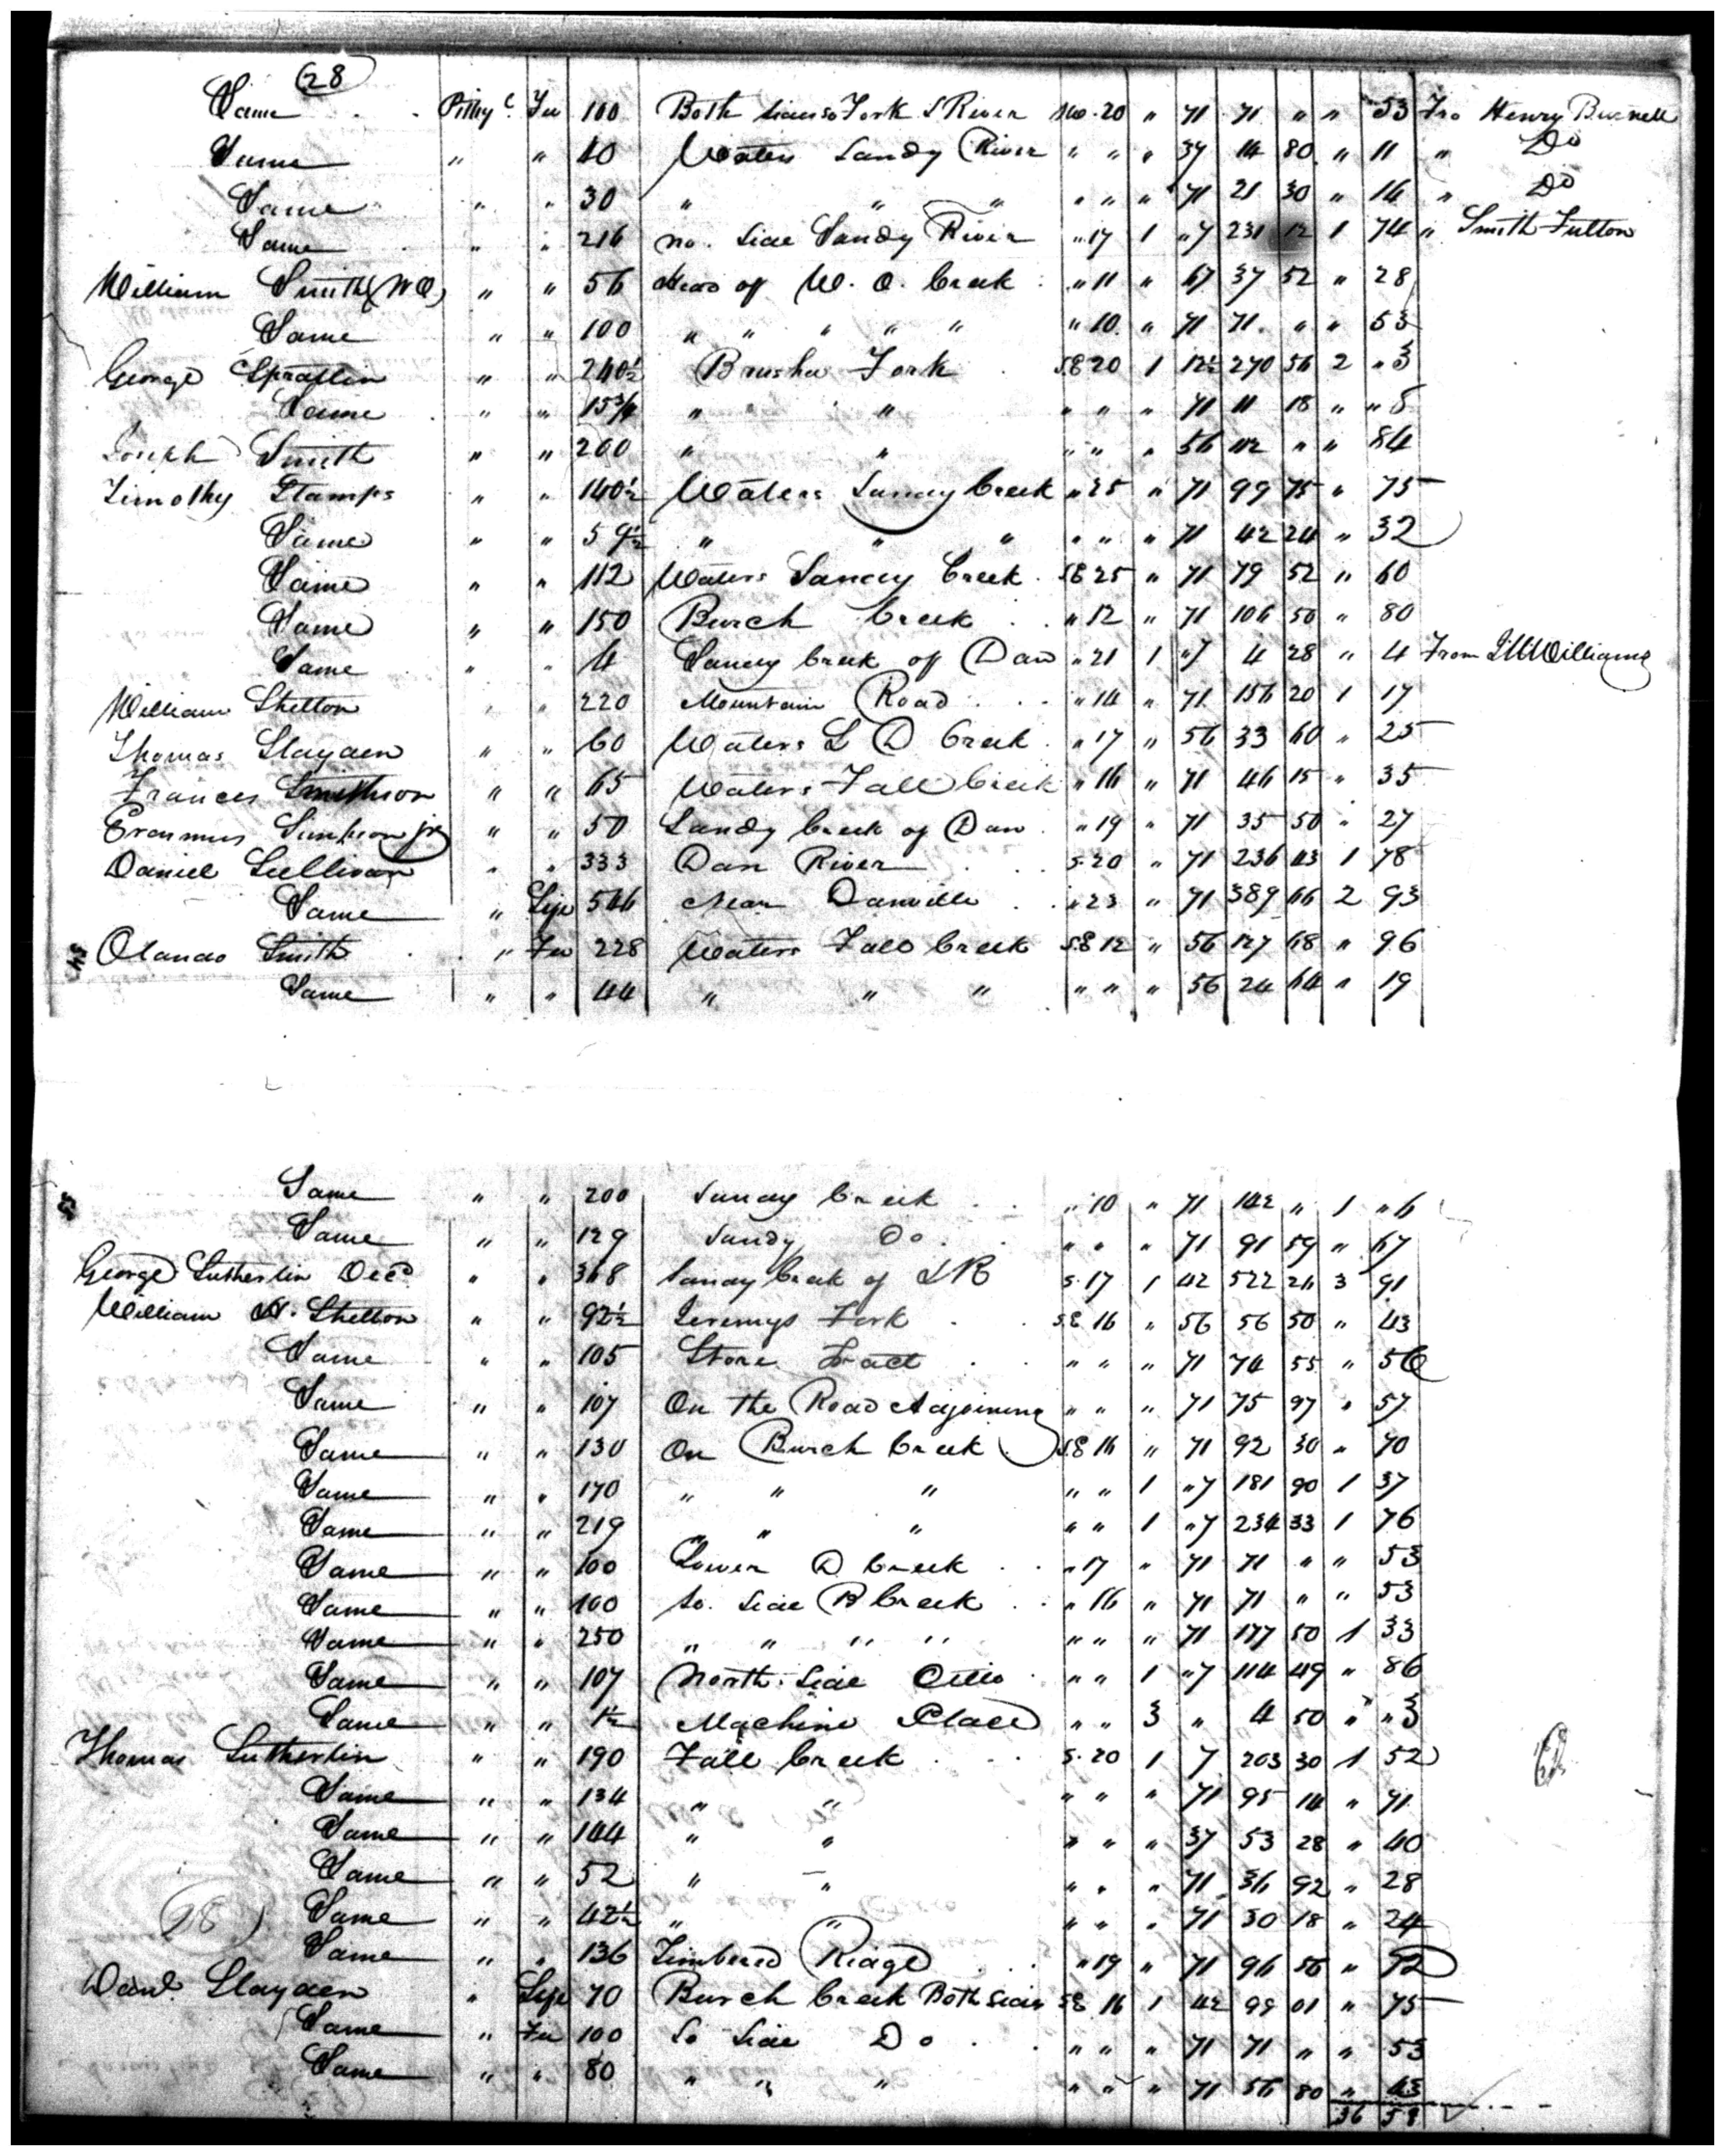 28
Same Pittsy^c Fee 100 Both sides so Fork S River No. 20 " 71 71 " " 53 Fro Henry Burnett
Same " " 40 Waters Sandy River " " " 37 14 80 " 11 " Do
Same " " 30 " " " " " " 71 21 30 " 16 " Do
Same " " 216 no. side Sandy River " 17 1 " 7 231 12 1 74 " Smith Fulton
William Smith (W O) " " 56 Head of W. O. Creek " 11 " 67 37 52 " 28
Same " " 100 " " " " " " 10 " 71 71 " " 53
George Spratlin " " 240½ Brusha Fork S.E 20 1 12½ 270 56 2 " 3
Same " " 15¾ " " " " " 71 11 18 " " 8
Joseph Smith " " 200 " " " " " 56 112 " " 84
Timothy Stamps " " 140½ Waters Sandy Creek " 25 " 71 99 75 " 75
Same " " 59½ " " " " " " 71 42 24 " 32
Same " " 112 Waters Sandy Creek SE 25 " 71 79 52 " 60
Same " " 150 Burch Creek " 12 " 71 106 50 " 80
Same " " 4 Sandy Creek of Dan " 21 1 " 7 4 28 " 4 From Williams
William Shelton " " 220 Mountain Road " 14 " 71 156 20 1 17
Thomas Slayden " " 60 Waters L D Creek " 17 " 56 33 60 " 25
Frances Smithson " " 65 Waters Fall Creek " 16 " 71 46 15 " 35
Erasmus Simpson jr " " 50 Sandy Creek of Dan " 19 " 71 35 50 " 27
Daniel Sullivan " " 333 Dan River S. 20 " 71 236 43 1 78
Same " Life 546 Near Danville " 23 " 71 389 66 2 93
Olando Smith " Fee 228 Waters Fall Creek S.E 12 " 56 127 68 " 96
Same " " 44 " " " " " " 56 24 64 " 19
Same " " 200 Sandy Creek " 10 " 71 142 " 1 " 6
Same " " 129 Sandy Do " " " 71 91 59 " 67
George Sutherlin Decd " " 368 Sandy Creek of S R S. 17 1 42 522 26 3 91
William H. Shelton " " 92½ Jeremys Fork S.E 16 " 56 56 50 " 43
Same " " 105 Store Tract " " " 71 74 55 " 56
Same " " 107 On the Road Adjoining " " " 71 75 97 " 57
Same " " 130 On Burch Creek S.E 16 " 71 92 30 " 70
Same " " 170 " " " " " 1 " 7 181 90 1 37
Same " " 219 " " " " " 1 " 7 234 33 1 76
Same " " 100 Lower D Creek " 17 " 71 71 " " 53
Same " " 100 So. Side B Creek " 16 " 71 71 " " 53
Same " " 250 " " " " " " " 71 177 50 1 33
Same " " 107 North Side Ditto " " 1 " 7 114 49 " 86
Same " " 1½ Machine Place " " 3 " 4 50 " " 3
Thomas Sutherlin " " 190 Fall Creek S. 20 1 7 203 30 1 52
Same " " 134 " " " " " 71 95 14 " 71
Same " " 144 " " " " " 37 53 28 " 40
Same " " 52 " " " " " 71 36 92 " 28
Same " " 42½ " " " " " 71 30 18 " 24
Same " " 136 Timbered Ridge " 19 " 71 96 56 " 72
Danl. Slayden " Life 70 Burch Creek Both sides SE 16 1 42 99 01 " 75
Same " Fee 100 So Side Do " " " 71 71 " " 53
Same " " 80 " " " " " " 71 56 80 " 43
36 59